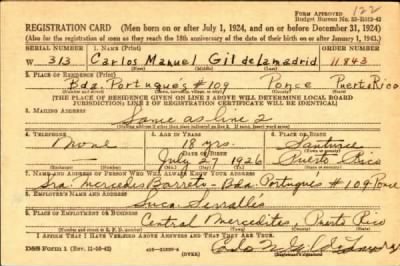 122
Form Approved
Budget Bureau No. 33-R013-42
REGISTRATION CARD (Men born on or after July 1, 1924, and on or before December 31, 1924)
(Also for the registration of men as they reach the 18th anniversary of the date of their birth on or after January 1, 1943.)
SERIAL NUMBER 1. NAME (Print) ORDER NUMBER
W 313 Carlos Manuel Gil de Lamadrid 11843
(First) (Middle) (Last)
2. PLACE OF RESIDENCE (Print)
Bda. Portugués #109 Ponce Puerto Rico
(State)
[THE PLACE OF RESIDENCE GIVEN ON LINE 2 ABOVE WILL DETERMINE LOCAL BOARD
JURISDICTION; LINE 2 OF REGISTRATION CERTIFICATE WILL BE IDENTICAL]
3. MAILING ADDRESS
Same as line 2
4. TELEPHONE 5. AGE IN YEARS 6. PLACE OF BIRTH
None 18 yrs. Santurce
DATE OF BIRTH
July 27 1926 Puerto Rico
7. NAME AND ADDRESS OF PERSON WHO WILL ALWAYS KNOW YOUR ADDRESS
Sra. Mercedes Barreto - Bda. Portugués #109 Ponce
8. EMPLOYER'S NAME AND ADDRESS
Suc. Serrallés
9. PLACE OF EMPLOYMENT OR BUSINESS
Central Mercedita, Puerto Rico
I AFFIRM THAT I HAVE VERIFIED ABOVE ANSWERS AND THAT THEY ARE TRUE.
DSS Form 1 (OVER)
(Registrant's signature)